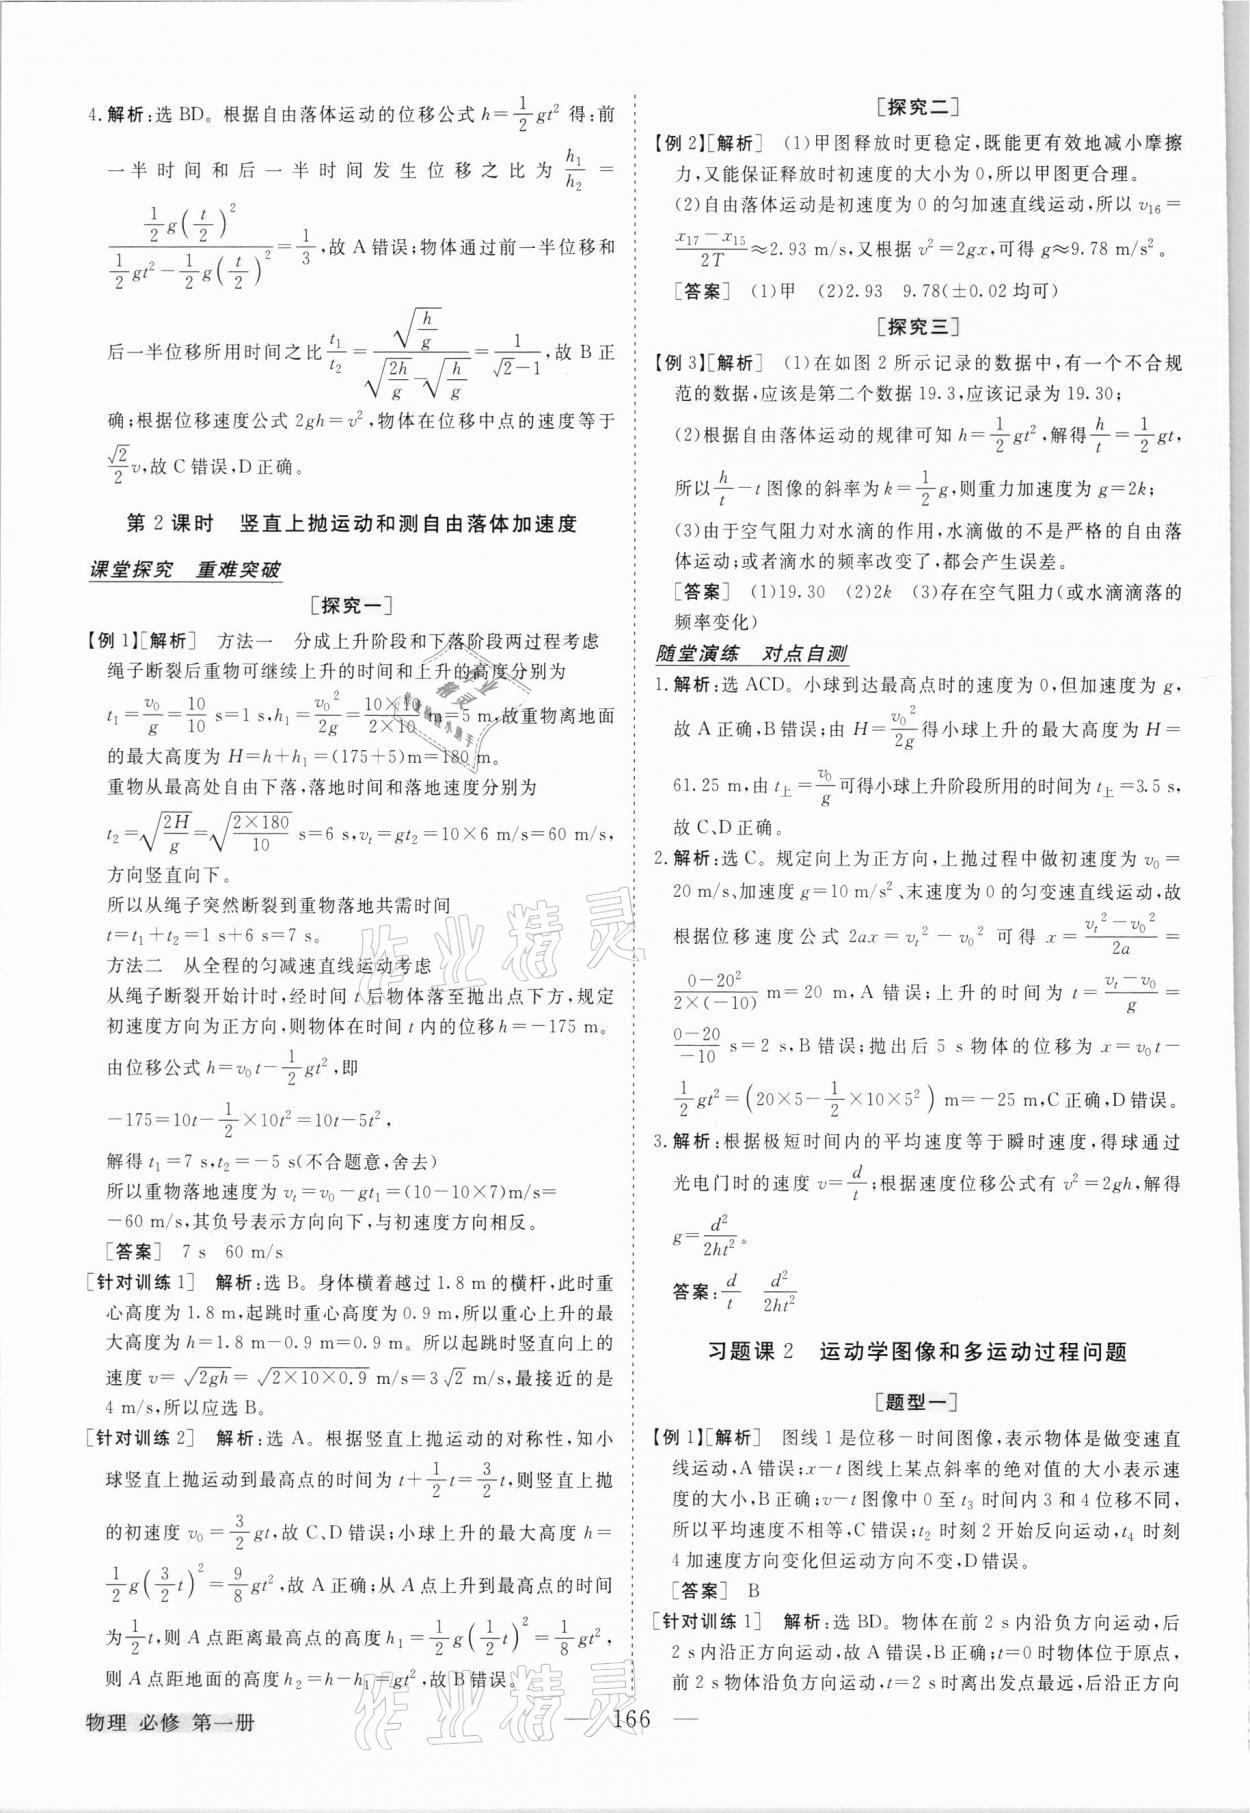 4. 解析:选 BD。根据自由落体运动的位移公式 h=1/2 gt² 得:前
一半时间和后一半时间发生位移之比为 h₁/h₂ =
(1/2 g(t/2)²)/(1/2 gt²-1/2 g(t/2)²)=1/3,故 A 错误;物体通过前一半位移和
后一半位移所用时间之比 t₁/t₂=√(h/g)/(√(2h/g)-√(h/g))=1/(√2-1),故 B 正
确;根据位移速度公式 2gh=v²,物体在位移中点的速度等于
√2/2 v,故 C 错误,D 正确。
第 2 课时 竖直上抛运动和测自由落体加速度
课堂探究 重难突破
[探究一]
【例 1】[解析] 方法一 分成上升阶段和下落阶段两过程考虑
绳子断裂后重物可继续上升的时间和上升的高度分别为
t₁=v₀/g=10/10 s=1 s,h₁=v₀²/2g=(10×10)/(2×10) m=5 m,故重物离地面
的最大高度为 H=h+h₁=(175+5)m=180 m。
重物从最高处自由下落,落地时间和落地速度分别为
t₂=√(2H/g)=√(2×180/10) s=6 s,vₜ=gt₂=10×6 m/s=60 m/s,
方向竖直向下。
所以从绳子突然断裂到重物落地共需时间
t=t₁+t₂=1 s+6 s=7 s。
方法二 从全程的匀减速直线运动考虑
从绳子断裂开始计时,经时间 t 后物体落至抛出点下方,规定
初速度方向为正方向,则物体在时间 t 内的位移h=-175 m。
由位移公式 h=v₀t-1/2 gt²,即
-175=10t-1/2×10t²=10t-5t²,
解得 t₁=7 s,t₂=-5 s(不合题意,舍去)
所以重物落地速度为 vₜ=v₀-gt₁=(10-10×7)m/s=
-60 m/s,其负号表示方向向下,与初速度方向相反。
[答案] 7 s 60 m/s
[针对训练1] 解析:选 B。身体横着越过 1.8 m 的横杆,此时重
心高度为 1.8 m,起跳时重心高度为 0.9 m,所以重心上升的最
大高度为 h=1.8 m-0.9 m=0.9 m。所以起跳时竖直向上的
速度 v=√(2gh)=√(2×10×0.9) m/s=3√2 m/s,最接近的是
4 m/s,所以应选 B。
[针对训练2] 解析:选 A。根据竖直上抛运动的对称性,知小
球竖直上抛运动到最高点的时间为 t+1/2 t=3/2 t,则竖直上抛
的初速度 v₀=3/2 gt,故 C、D 错误;小球上升的最大高度 h=
1/2 g(3/2 t)²=9/8 gt²,故 A 正确;从 A 点上升到最高点的时间
为1/2 t,则 A 点距离最高点的高度 h₁=1/2 g(1/2 t)²=1/8 gt²,
则 A 点距地面的高度 h₂=h-h₁=gt²,故 B 错误。
[探究二]
【例 2】[解析] (1)甲图释放时更稳定,既能更有效地减小摩擦
力,又能保证释放时初速度的大小为 0,所以甲图更合理。
(2)自由落体运动是初速度为 0 的匀加速直线运动,所以 v₁₆=
(x₁₇-x₁₅)/2T≈2.93 m/s,又根据 v²=2gx,可得 g≈9.78 m/s²。
[答案] (1)甲 (2)2.93 9.78(±0.02 均可)
[探究三]
【例 3】[解析] (1)在如图 2 所示记录的数据中,有一个不合规
范的数据,应该是第二个数据 19.3,应该记录为 19.30;
(2)根据自由落体运动的规律可知 h=1/2 gt²,解得 h/t=1/2 gt,
所以 h/t-t 图像的斜率为 k=1/2 g,则重力加速度为 g=2k;
(3)由于空气阻力对水滴的作用,水滴做的不是严格的自由落
体运动;或者滴水的频率改变了,都会产生误差。
[答案] (1)19.30 (2)2k (3)存在空气阻力(或水滴滴落的
频率变化)
随堂演练 对点自测
1. 解析:选 ACD。小球到达最高点时的速度为 0,但加速度为 g,
故 A 正确,B 错误;由 H=v₀²/2g得小球上升的最大高度为 H=
61.25 m,由 t上=v₀/g可得小球上升阶段所用的时间为 t上=3.5 s,
故 C、D 正确。
2. 解析:选 C。规定向上为正方向,上抛过程中做初速度为 v₀=
20 m/s、加速度 g=10 m/s²、末速度为 0 的匀变速直线运动,故
根据位移速度公式 2ax=vₜ²-v₀² 可得 x=(vₜ²-v₀²)/2a=
(0-20²)/(2×(-10)) m=20 m,A 错误;上升的时间为 t=(vₜ-v₀)/g=
(0-20)/-10 s=2 s,B 错误;抛出后 5 s 物体的位移为 x=v₀t-
1/2 gt²=(20×5-1/2×10×5²) m=-25 m,C 正确,D 错误。
3. 解析:根据极短时间内的平均速度等于瞬时速度,得球通过
光电门时的速度 v=d/t;根据速度位移公式有 v²=2gh,解得
g=d²/2ht²。
答案:d/t d²/2ht²
习题课 2 运动学图像和多运动过程问题
[题型一]
【例 1】[解析] 图线 1 是位移-时间图像,表示物体是做变速直
线运动,A 错误;x-t 图线上某点斜率的绝对值的大小表示速
度的大小,B 正确;v-t 图像中 0 至 t₃ 时间内 3 和 4 位移不同,
所以平均速度不相等,C 错误;t₂ 时刻 2 开始反向运动,t₄ 时刻
4 加速度方向变化但运动方向不变,D 错误。
[答案] B
[针对训练1] 解析:选 BD。物体在前 2 s内沿负方向运动,后
2 s内沿正方向运动,故 A 错误,B 正确;t=0 时物体位于原点,
前 2 s物体沿负方向运动,t=2 s时离出发点最远,后沿正方向
物理 必修 第一册
— 166 —
作业精灵
作业精灵
作业精灵
作业检查小助手